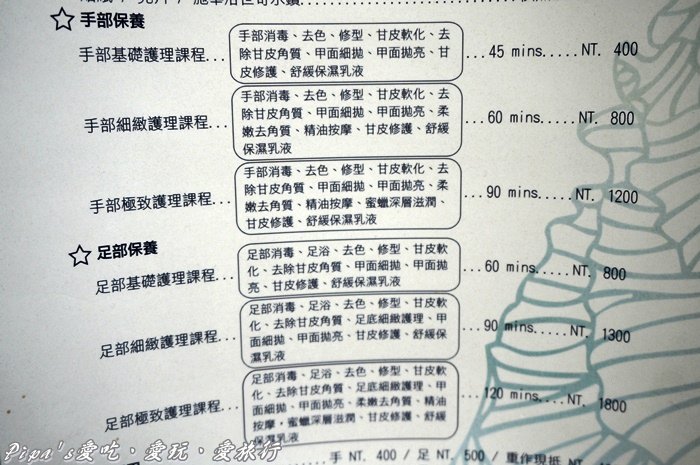 手部保養
手部消毒、去色、修型、甘皮軟化、去
手部基礎護理課程...除甘皮角質、甲面細拋、甲面拋亮、甘...45 mins.....NT. 400
皮修護、舒緩保濕乳液
手部消毒、去色、修型、甘皮軟化、去
除甘皮角質、甲面細拋、甲面拋亮、柔
手部細緻護理課程...嫩去角質、精油按摩、甘皮修護、舒緩...60 mins.....NT. 800
保濕乳液
手部消毒、去色、修型、甘皮軟化、去
除甘皮角質、甲面細拋、甲面拋亮、柔
手部極致護理課程...嫩去角質、精油按摩、蜜蠟深層滋潤、...90 mins.....NT. 1200
甘皮修護、舒緩保濕乳液
足部保養
足部消毒、足浴、去色、修型、甘皮軟
足部基礎護理課程...化、去除甘皮角質、甲面細拋、甲面拋...60 mins.....NT. 800
亮、甘皮修護、舒緩保濕乳液
足部消毒、足浴、去色、修型、甘皮軟
化、去除甘皮角質、足底細緻護理、甲
足部細緻護理課程...面細拋、甲面拋亮、甘皮修護、舒緩保...90 mins.....NT. 1300
濕乳液
足部消毒、足浴、去色、修型、甘皮軟
化、去除甘皮角質、足底細緻護理、甲
足部極致護理課程...面細拋、甲面拋亮、柔嫩去角質、精油...120 mins....NT. 1800
按摩、蜜蠟深層滋潤、甘皮修護、舒緩
保濕乳液
手 NT. 400 / 足 NT. 500 / 重作現抵 NT
Pipa's愛吃．愛玩．愛旅行